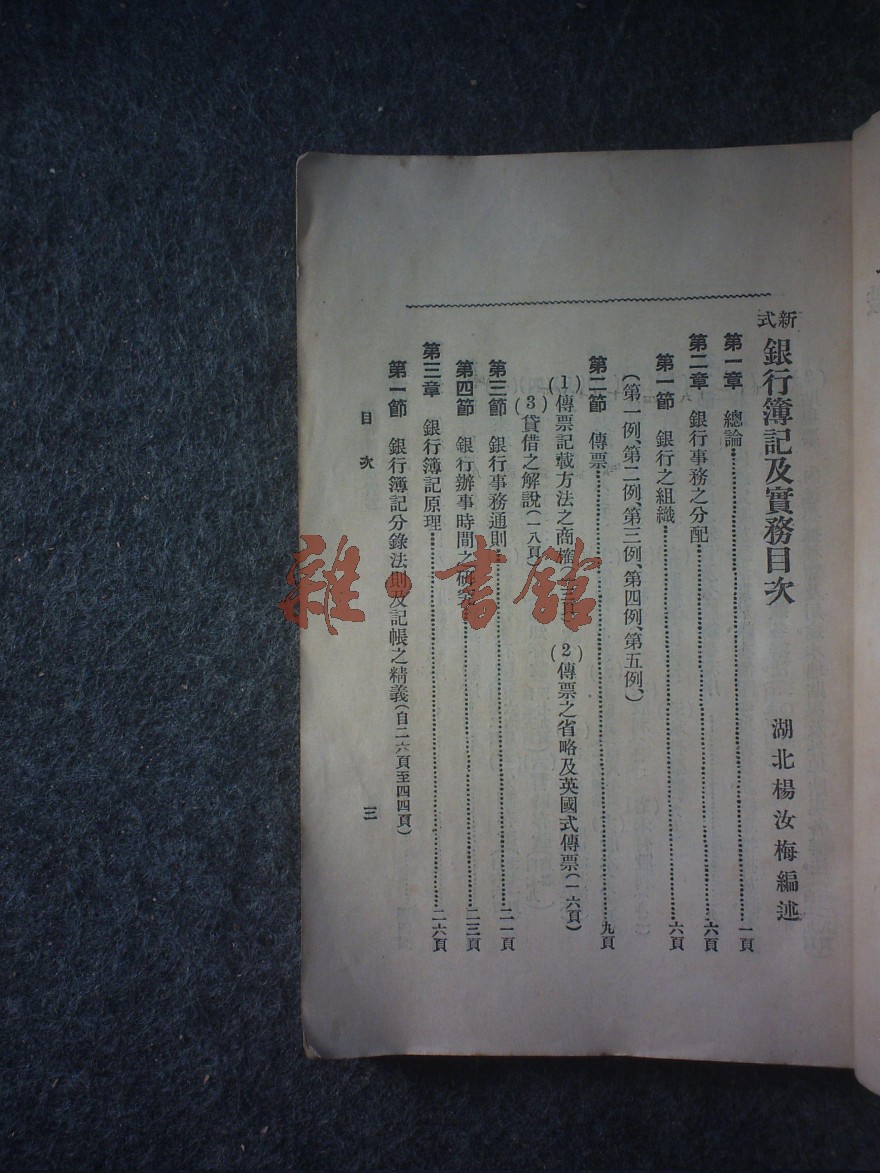 新式銀行簿記及實務目次
湖北楊汝梅編述
第一章 總論⋯⋯一頁
第二章 銀行事務之分配⋯⋯六頁
第一節 銀行之組織⋯⋯六頁
(第一例、第二例、第三例、第四例、第五例、)
第二節 傳票⋯⋯九頁
(1)傳票記載方法之商榷 (2)傳票之省略及英國式傳票(一六頁)
(3)貸借之解說(一八頁)
第三節 銀行事務通則⋯⋯二一頁
第四節 銀行辦事時間之研究⋯⋯二三頁
第三章 銀行簿記原理⋯⋯二六頁
第一節 銀行簿記分錄法則及記帳之精義(自二六頁至四四頁)
目次
三
雜·書館